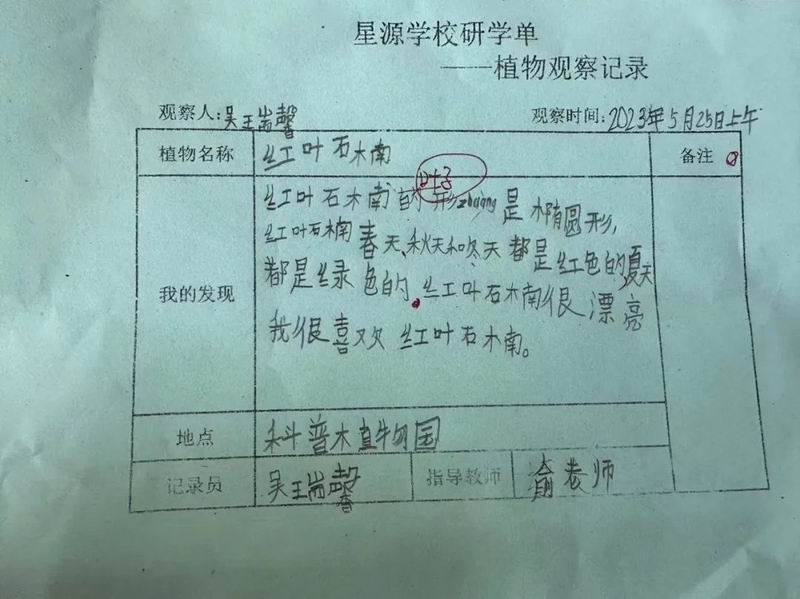 星源学校研学单
——植物观察记录
观察人:吴王耑馨 观察时间:2023年5月25日上午
植物名称 红叶石木南 备注
叶子
红叶石木南的形zhuàng是椭圆形,
红叶石楠春天、秋天和冬天都是红色的,夏天
我的发现 都是绿色的。红叶石木南很漂亮
我很喜欢红叶石木南。
地点 科普植物园
记录员 吴王耑馨 指导教师 俞老师